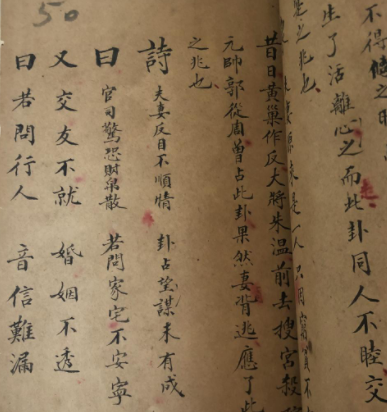 50
不得
生了活離心之而此卦同人不睦交
之兆也
來是一人只因窮
昔日黃巢作反大將朱溫前去搜宮殺
元帥郭從周曾占此卦果然妻背逃應了此
之兆也
詩 夫妻反目不順情 卦占望謀未有成
曰 官司驚恐財帛散 若問家宅不安寧
又交友不就 婚姻不透
曰若問行人 音信難漏